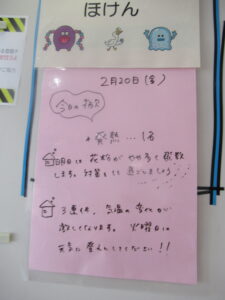 ほけん
2月20日(金)
今日の病欠
発熱…1名
明日は花粉がやや多く飛散
します。対策をして過ごしましょう
3連休、気温の変化が
激しくなります。火曜日に
元気に登えんしてください!!